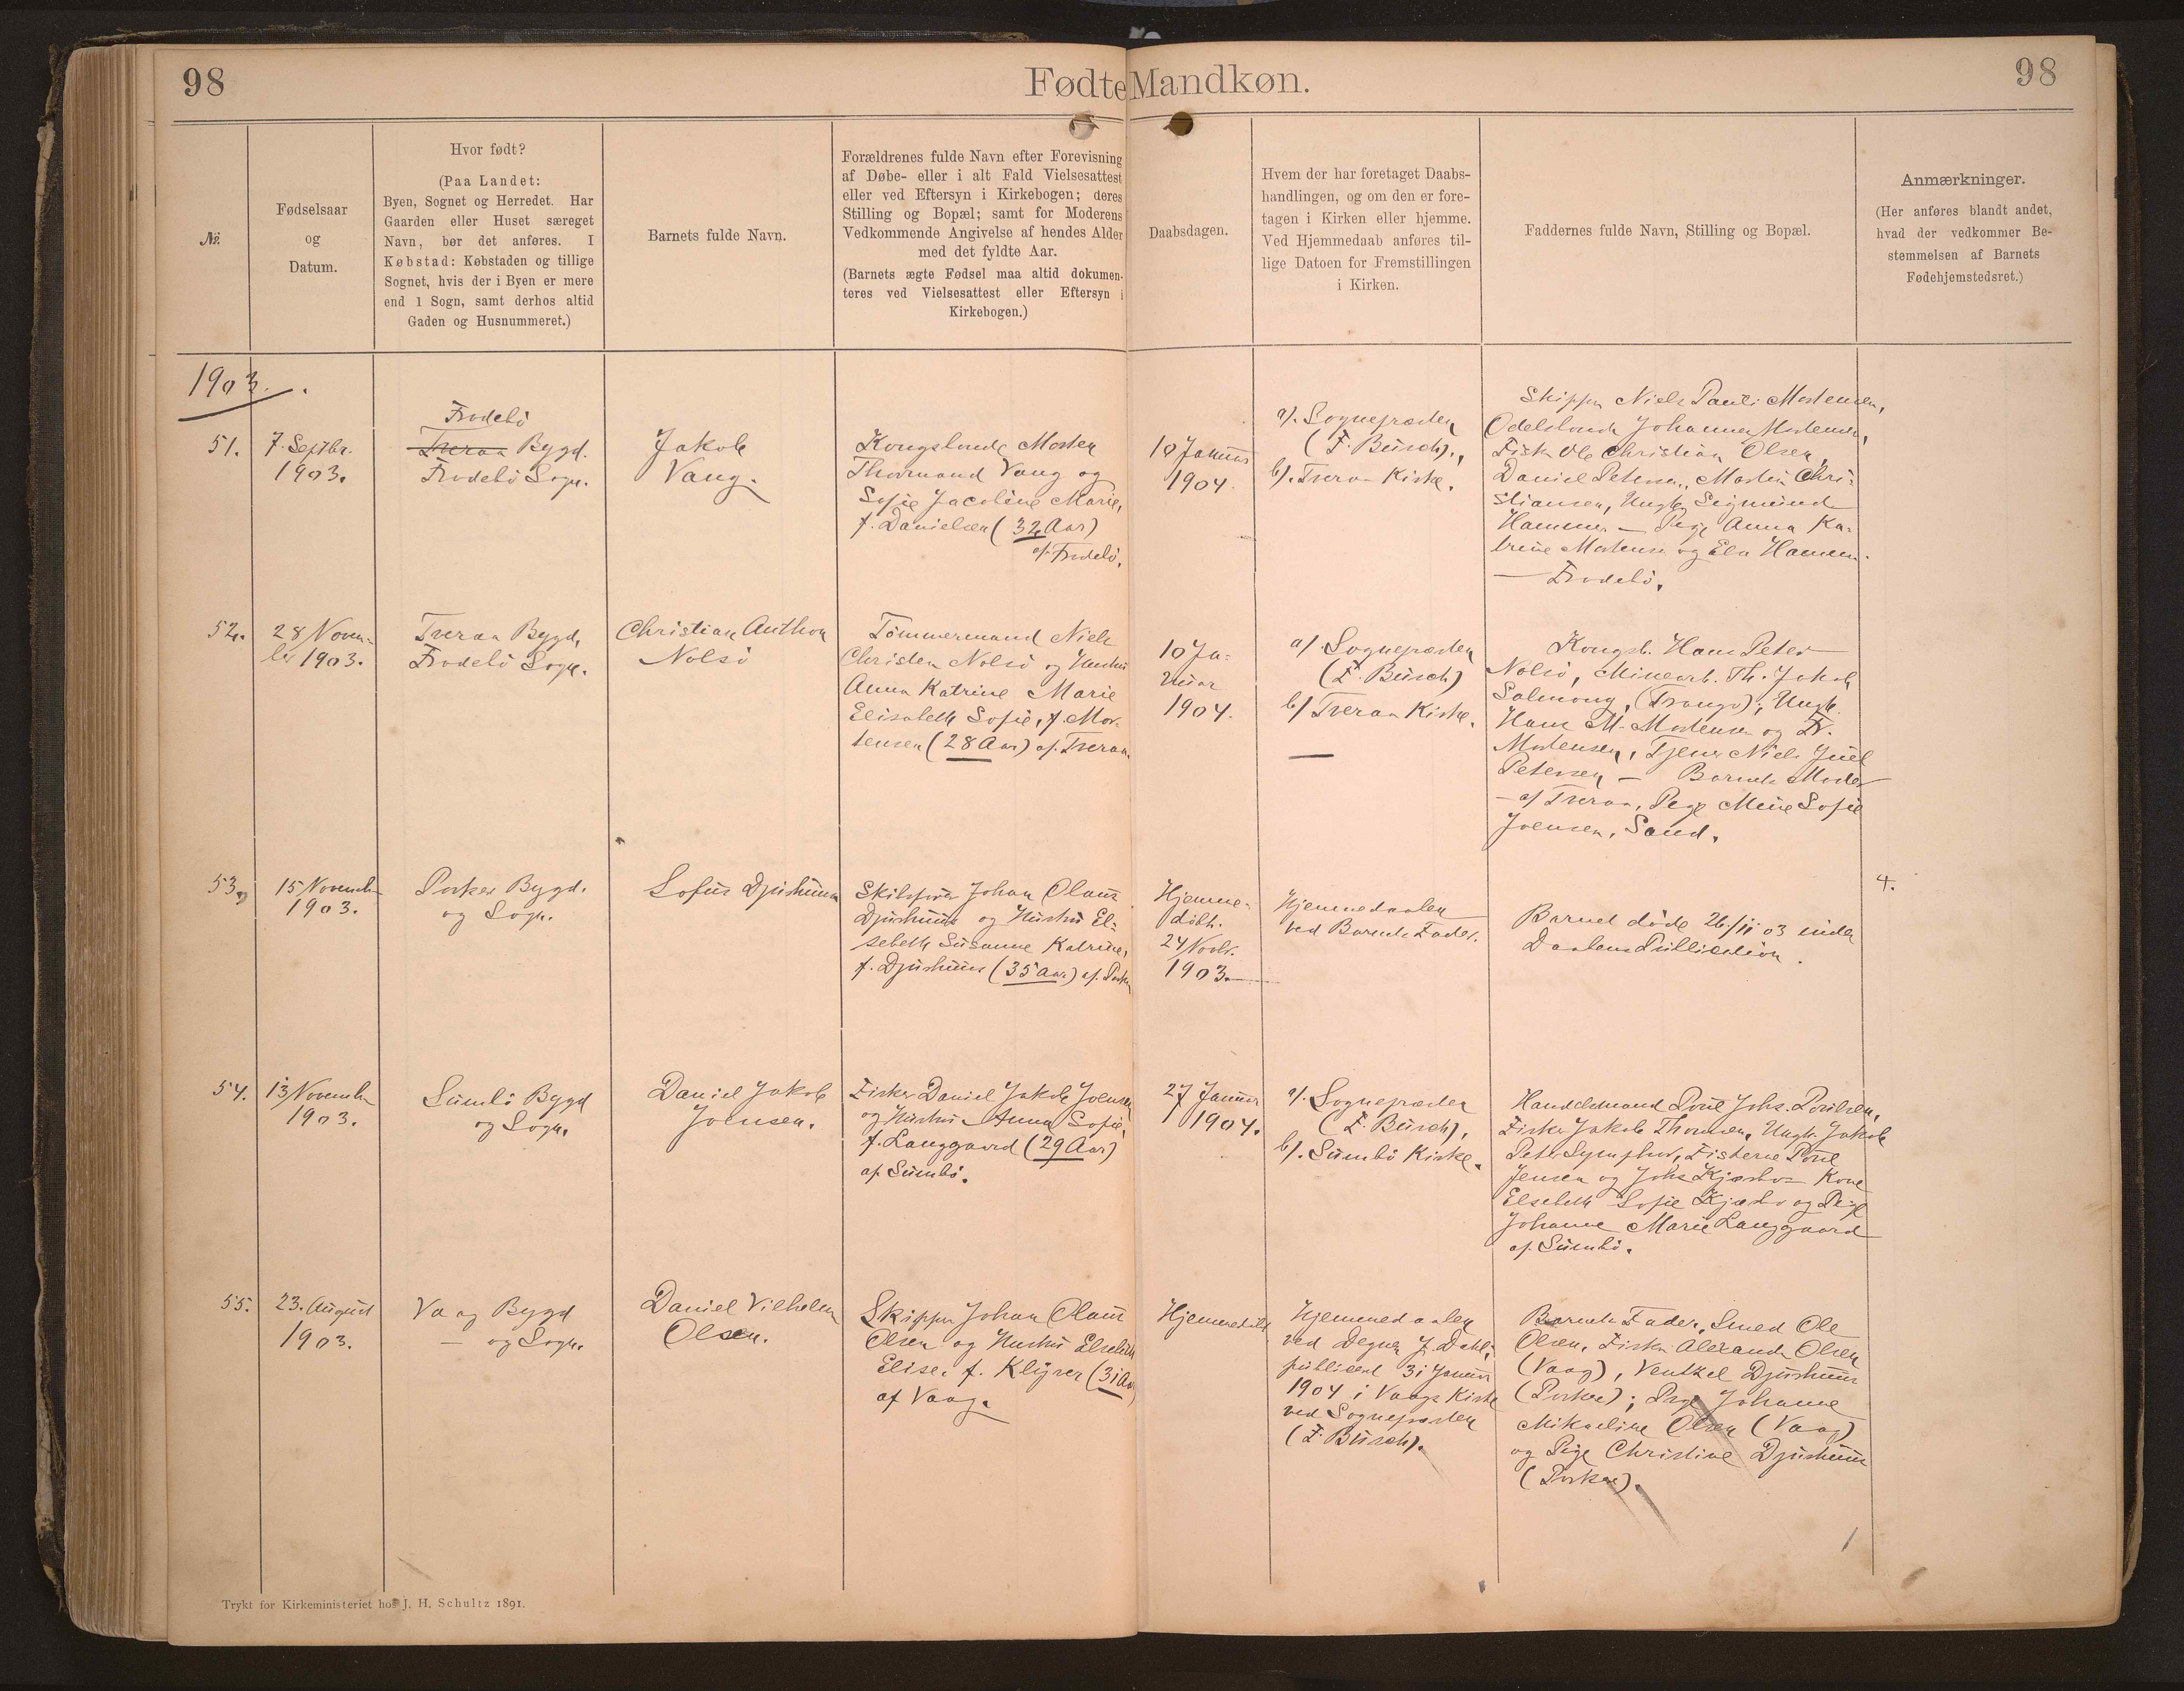 98
Fødte Mandkøn.
98
№.
Fødselsaar
og
Datum.
Hvor født?
(Paa Landet:
Byen, Sognet og Herredet. Har
Gaarden eller Huset særeget
Navn, bør det anføres. I
Købstad: Købstaden og tillige
Sognet, hvis der i Byen er mere
end 1 Sogn, samt derhos altid
Gaden og Husnummeret.)
Barnets fulde Navn.
Forældrenes fulde Navn efter Forevisning
af Døbe- eller i alt Fald Vielsesattest
eller ved Eftersyn i Kirkebogen; deres
Stilling og Bopæl; samt for Moderens
Vedkommende Angivelse af hendes Alder
med det fyldte Aar.
(Barnets ægte Fødsel maa altid dokumen-
teres ved Vielsesattest eller Eftersyn i
Kirkebogen.)
Daabsdagen.
Hvem der har foretaget Daabs-
handlingen, og om den er fore-
tagen i Kirken eller hjemme.
Ved Hjemmedaab anføres til-
lige Datoen for Fremstillingen
i Kirken.
Faddernes fulde Navn, Stilling og Bopæl.
Anmærkninger.
(Her anføres blandt andet,
hvad der vedkommer Be-
stemmelsen af Barnets
Fødehjemstedsret.)
1903.
51.
7. Septbr.
1903.
Frodebö
Tveraa Bygd.
Frodebö Sogn.
Jakob
Vang.
Kongsbonde Morten
Thormond Vang og
Sofie Jacobine Marie,
f. Danielsen (32 Aar)
af Frodebö.
10 Januar
1904.
a/. Sognepræsten
(F. Büsch).,
b/. Tveraa Kirke.
Skipper Niels Pauli Mortensen,
Odelsbonde Johannes Mortensen,
Fisker Ole Christian Olsen,
Daniel Petersen, Martin Chri-
stiansen, Ungk. Sigmund
Hammer — Pige Anna Ka-
trine Mortensen og Hammer.
— Frodebö.
52.
28 Novem-
ber 1903.
Tveraa Bygd,
Frodebö Sogn.
Christian Anthon
Nolsö
Tömmermand Niels
Christen Nolsö og Hustru
Anna Katrine Marie
Elisabeth Sofie, f. Mor-
tensen (28 Aar) af Tveraa.
10 Ja-
nuar
1904.
a/. Sognepræsten
(F. Büsch)
b/ Tveraa Kirke.
—
Kongsb. Hans Peter
Nolsö, Minearb. Th. Jakob
Salmong, ; Ungk.
Hans M. Mortensen og Fr.
Mortensen, Tjener Niels Juel
Petersen — Barnets Moder
— af Tveraa, Pige Mine Sofie
Joensen, Sand.
53.
15 November
1903.
Porkes Bygd.
og Sogn.
Sofus Djurhuus
Skibsförer Johan Olaus
Djurhuus og Hustru El-
sebeth Susanne Katrine,
f. Djurhuus (35 Aar) af Porkes
Hjemme-
döbt.
24 Novbr.
1903.
Hjemmedaaben
ved Barnets Fader.
Barnet döde 26/11 03 inden
Daabens Publication.
4.
54.
13 November
1903.
Sumbö Bygd
og Sogn.
Daniel Jakob
Joensen.
Fisker Daniel Jakob Joensen
og Hustru Anna Sofie,
f. Langgaard (29 Aar)
af Sumbö.
27 Januar
1904.
a/. Sognepræsten
(F. Büsch),
b/. Sumbö Kirke.
Handelsmand Poul Johs. Poulsen,
Fisker Jakob Thomsen, Ungk. Jakob
Peter Symphor, Fiskerne Poul
Jensen og Johs Kjærbo — Kone
Elsebeth Sofie Kjærbo og Pige
Johanne Marie Langgaard
af Sumbö.
55.
23. August
1903.
Vaag Bygd
— og Sogn.
Daniel Vilhelm
Olsen.
Skipper Johan Olaus
Olsen og Hustru Elsebeth
Elise, f. Klyver (31 Aar)
af Vaag.
Hjemmedöbt
Hjemmedaaben
ved Degnen J. Dahl,
publiceret 31 Januar
1904 i Vaags Kirke
ved Sognepræsten
(F. Büsch).
Barnets Fader, Smed Ole
Olsen, Fisker Alexander Olsen
(Vaag), Ventzel Djurhuus
(Porkes); Pige Johanne
Mikaeline Olsen (Vaag)
og Pige Christine Djurhuus
(Porkes).
Trykt for Kirkeministeriet hos J. H. Schultz 1891.